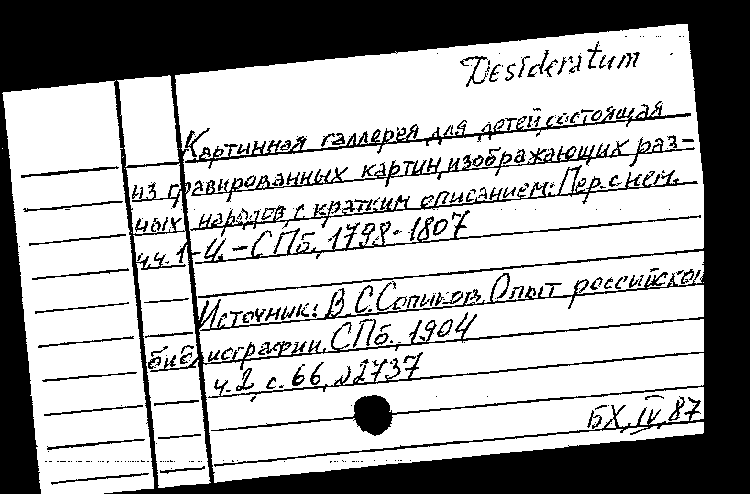 Desideratum
Картинная галлерея для детей, состоящая
из гравированных картин, изображающих раз-
ных народов, с кратким описанием: Пер. с нем.
ч.ч. 1-4. - СПб., 1798-1807
Источник: В.С. Сопиков. Опыт российской
библиографии. СПб., 1904
ч.2, с. 66, №2737
БХ, IV, 87